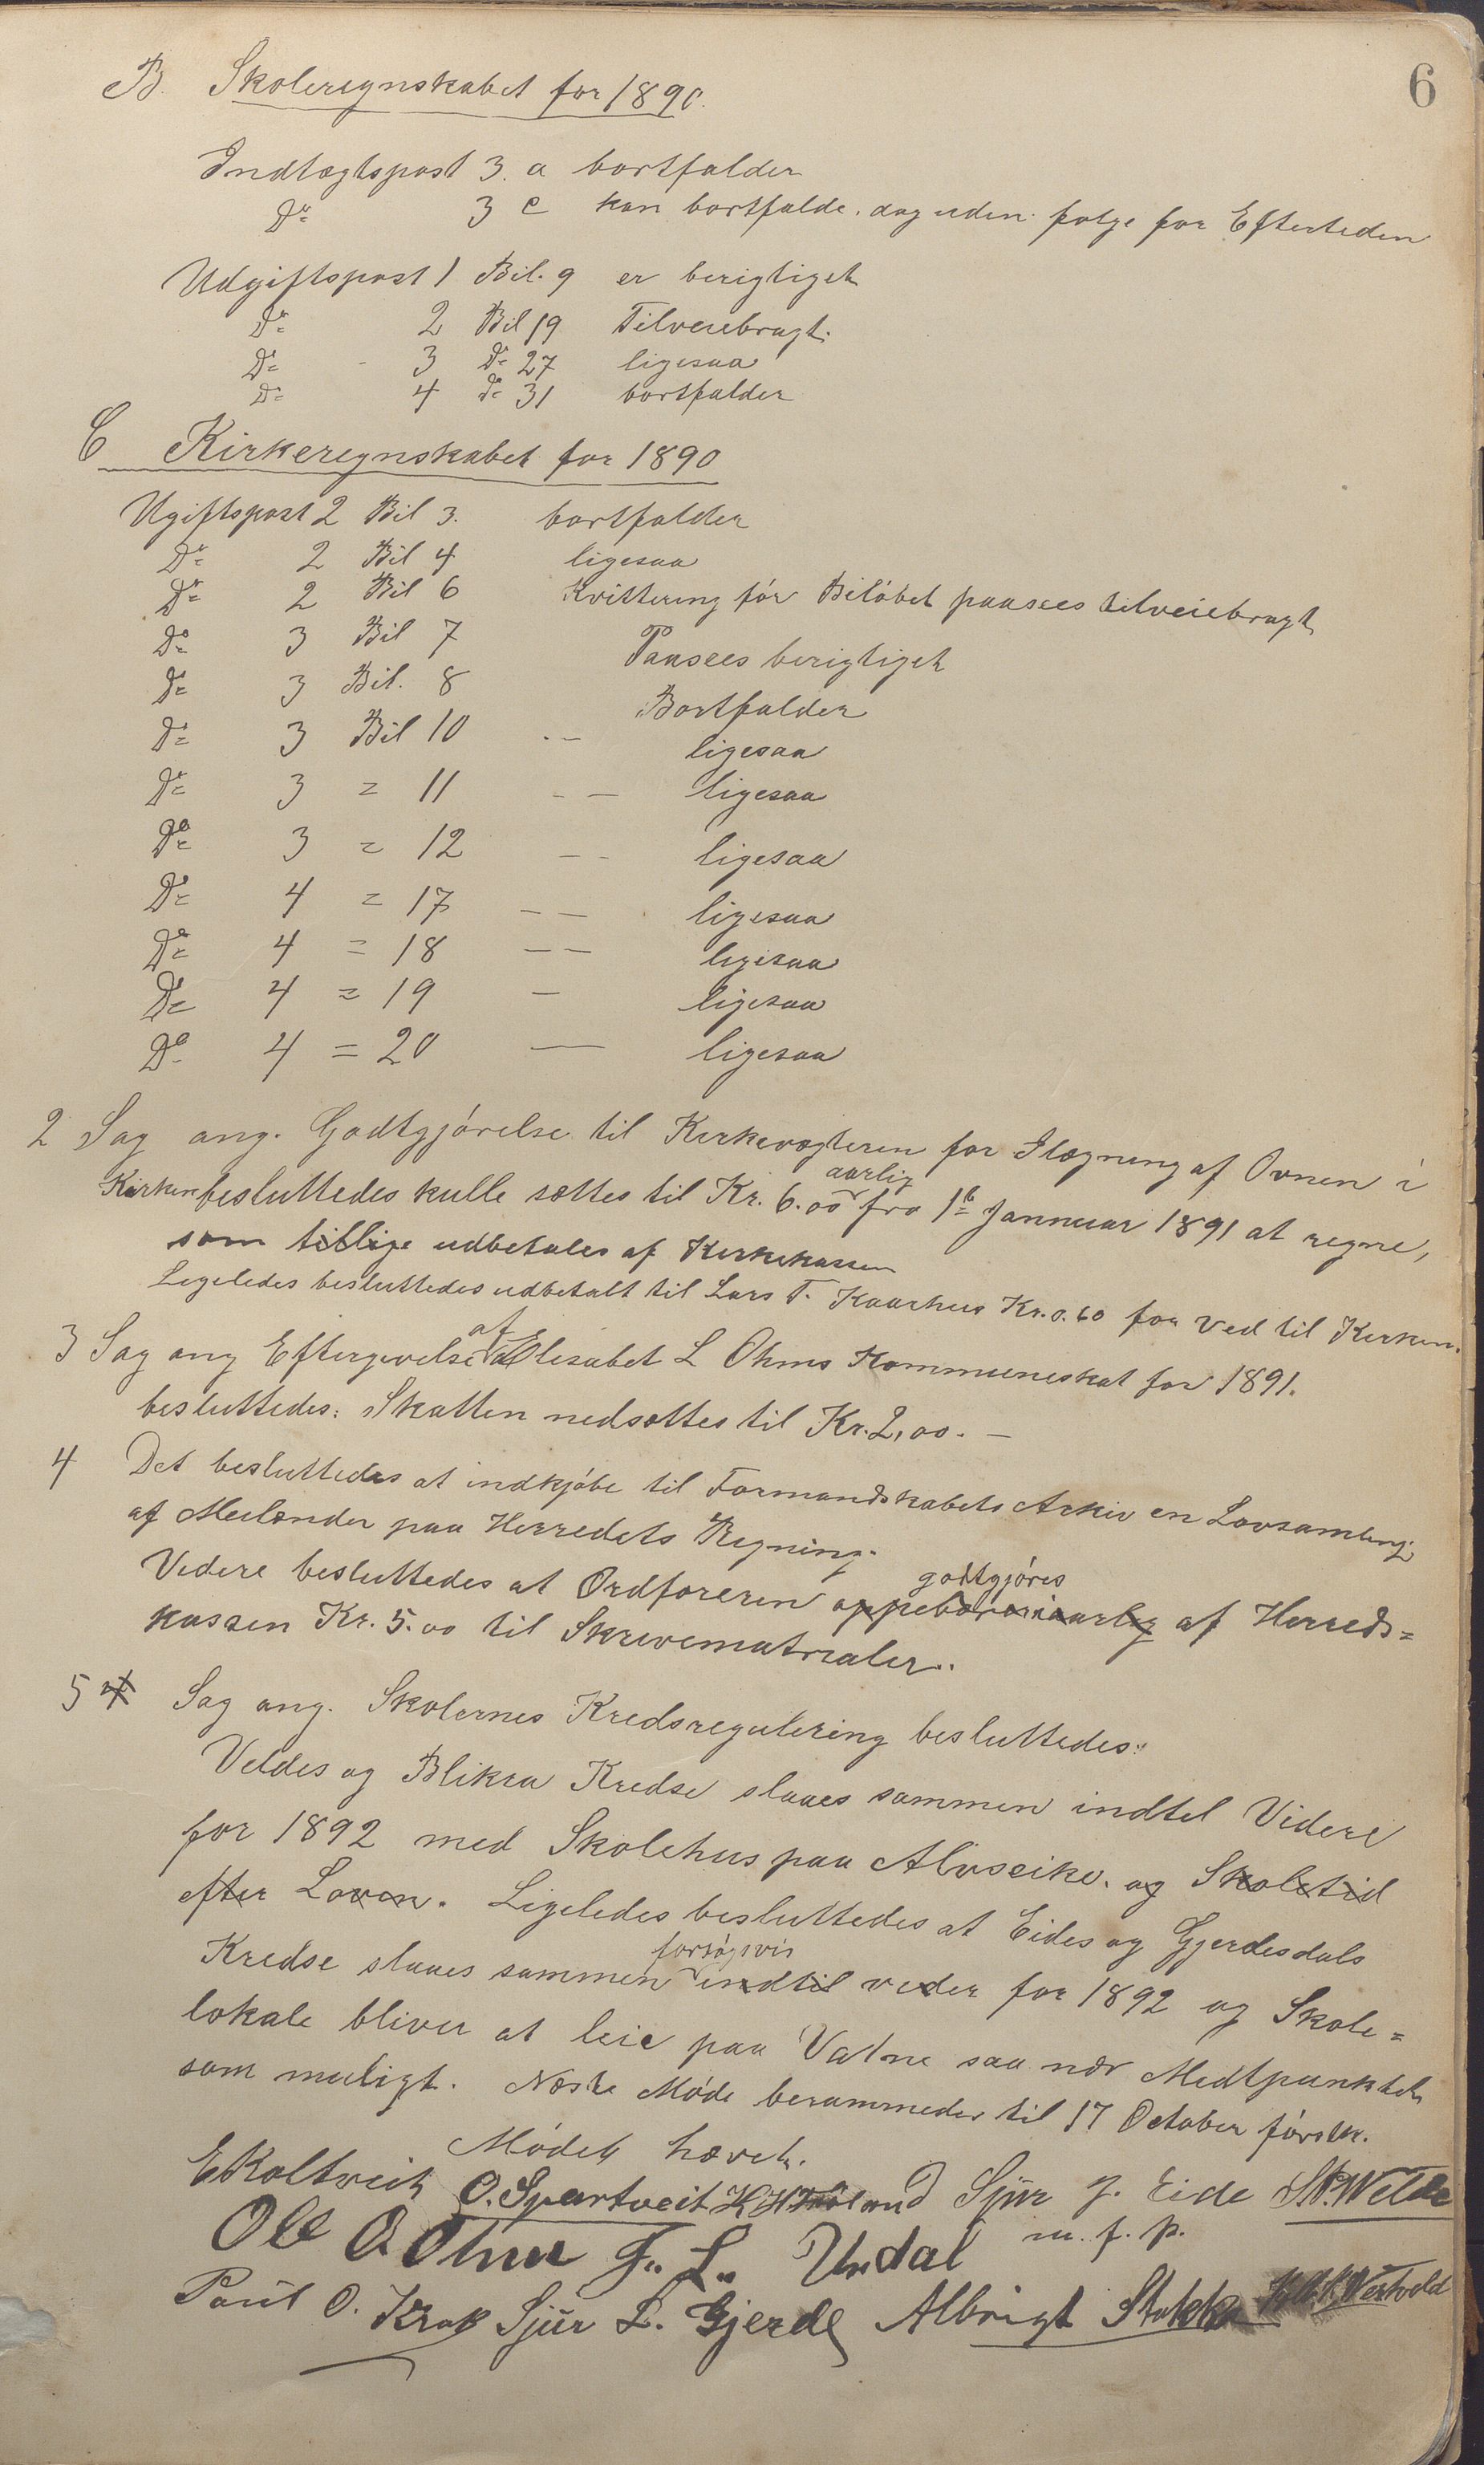 6
B. Skoleregnskabet for 1890.
Indtægtspost 3. a bortfalder
Do 3 c kan bortfalde, dog uden følge for Eftertiden
Udgiftspost 1 Bil. 9 er berigtiget
Do 2 Bil 19 Tilveiebragt.
Do - 3 Do 27 ligesaa
Do 4 do 31 bortfalder
C Kirkeregnskabet for 1890
Ugiftspost 2 Bil 3. bortfalder
Do 2 Bil 4 ligesaa
Do 2 Bil 6 Kvittering før Beløbet paasees tilveiebragt
Do 3 Bil 7 Paasees berigtiget
Do 3 Bil. 8 Bortfalder
Do 3 Bil 10 -- ligesaa
Do 3 = 11 -- ligesaa
Do 3 = 12 -- ligesaa
Do 4 = 17 -- ligesaa
Do 4 = 18 -- ligesaa
Do 4 = 19 - ligesaa
Do 4 = 20 — ligesaa
2 Sag ang. Godtgjørelse til Kirkevogteren for Ilægning af Ovnen i
Kirken besluttedes kulle sættes til Kr. 6.00 aarlig fra 1te Jannuar 1891 at regne,
som tillige udbetales af Kirkekassen
Ligeledes besluttedes udbetalt til Lars T. Kaarhus Kr. 0.60 for Ved til Kirken.
3 Sag ang Eftergivelse af Elisabet L Ohms Kommuneskat for 1891.
besluttedes: Skatten nedsættes til Kr. 2,00. —
4 Det besluttedes at indkjøbe til Formandskabets Arkiv en Lovsamling
af Meilænder paa Herredets Regning.
Videre besluttedes at Ordføreren oppebærer aarlig godtgjøres af Herreds=
kassen Kr. 5.00 til Skrivematrialer.
5 4 Sag ang. Skolernes Kredsregulering besluttedes:
Veldes og Blikra Kredse slaaes sammen indtil Videre
for 1892 med Skolehus paa Alvseike. og Skoletid
efter Loven. Ligeledes besluttedes at Eides og Gjerdesdals
Kredse slaaes sammen forsøgsvis indtil veder for 1892 og Skole=
lokale bliver at leie paa Vatne saa nær Medtpunktet
som muligt. Næste Møde berammedes til 17 October førstk.
Mødet hævet.
E Koltveit O. Spartveit K H Sjur J. Eide St. P. Welde
m. f. p.
Ole O Ohm J. L. Undal
Paul O. Krak Sjur L. Gjerde Albrigt Stakka